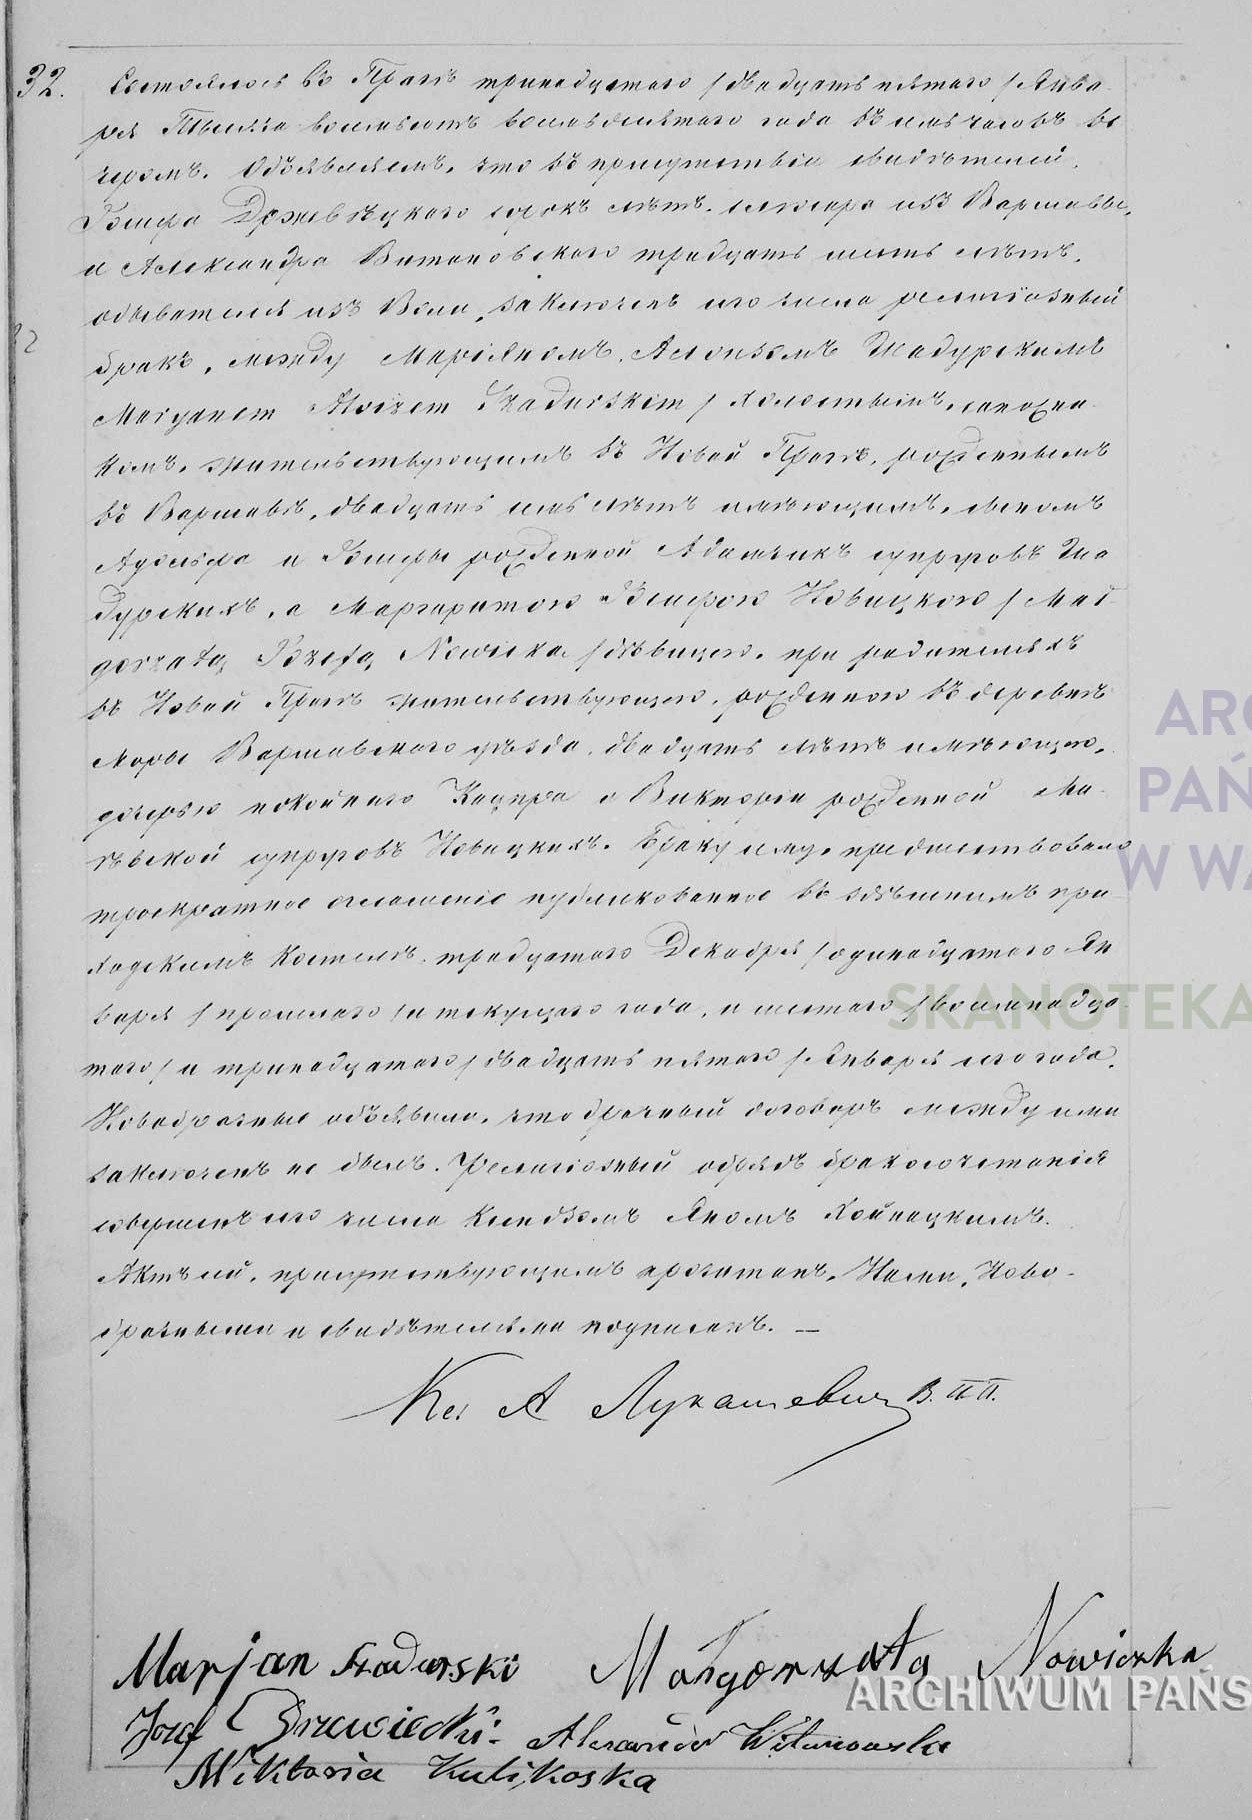 32. Состоялось въ Прагѣ тринадцатаго /двадцать пятаго/ Янва-
ря Тысяча восемьсотъ восьмидесятаго года въ семь часовъ ве
черомъ. Объявляемъ, что въ присутствіи свидѣтелей,
Іосифа Држевѣцкаго сорокъ лѣтъ, столяра изъ Варшавы,
и Александра Витановскаго тридцать шесть лѣтъ,
обывателя изъ Воли, заключенъ сего числа религіозный
бракъ, между Маріяномъ, Алоизомъ Шадурскимъ
Maryanem Aloizem Szadurskim / холостымъ, сапожни-
комъ, жительствующимъ въ Новой Прагѣ, рожденнымъ
въ Варшавѣ, двадцать семь лѣтъ имѣющимъ, сыномъ
Адольфа и Іосифы рожденной Адамчикъ супруговъ Ша
дурскихъ, а Маргаритою Іосифою Новицкою / Mał-
gorzatą Józefą Nowicka / дѣвицею, при родителяхъ
въ Новой Прагѣ жительствующею, рожденною въ деревнѣ
Моры Варшавскаго уѣзда, двадцать лѣтъ имѣющею,
дочерью покойнаго Каспра и Викторіи рожденной Ма-
ѣвской супруговъ Новицкихъ. Браку сему предшествовало
троекратное оглашеніе публикованное въ здѣшнемъ при-
ходскомъ костелѣ, тридцатаго Декабря / одинадцатаго Ян
варя / прошлаго / и текущаго года, и шестаго / восемнадца-
таго / и тринадцатаго / двадцать пятаго / Января сего года.
Новобрачные объявили, что брачный договоръ между ими
заключенъ не былъ. Религіозный обрядъ бракосочетанія
совершенъ сего числа Ксендзомъ Яномъ Хойнацкимъ.
Актъ сей, присутствующимъ прочитанъ, Нами, Ново-
брачными и свидѣтельми подписанъ. —
Кс. А Лукашевичъ В. П П.
Marjan Szadurski Małgorzata Nowiczka
Józef Drzewiecki. Alexander Witanowski
Wiktoria Kulikoska
ARCHIWUM PAŃS
SKANOTEKA
ARC
PAŃ
W WA